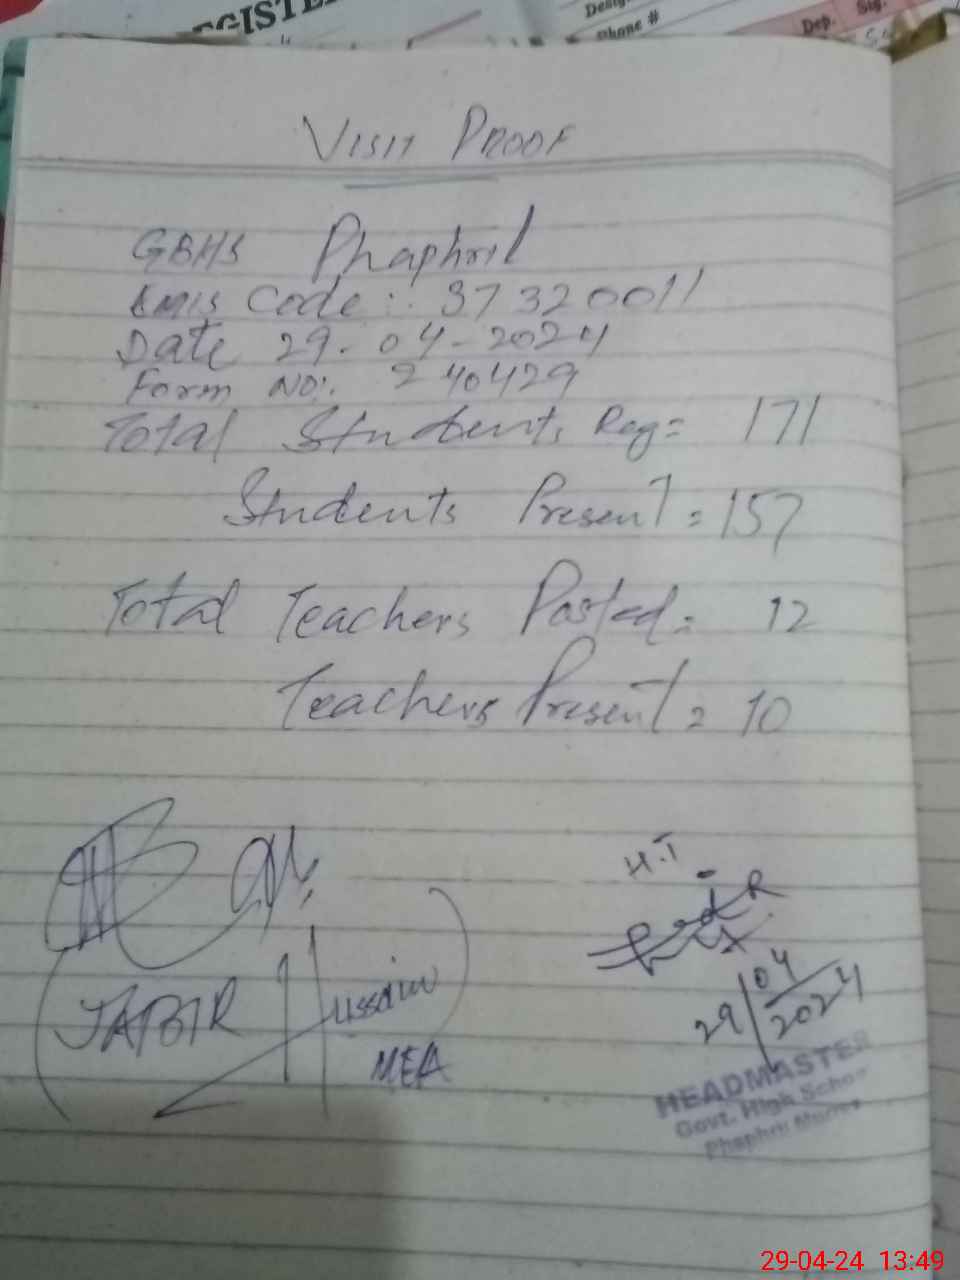 REGISTE
Desig
Phone #
Dep. Sig.
VISIT PROOF
GBHS Phaphril
EMIS Code :. 37320011
Date 29-04-2024
Form NO:. 240429
Total Students Reg = 171
Students Present = 157
Total Teachers Posted = 12
Teachers Present = 10
(JABIR Hussain)
MEA
H.T
29/04/2024
HEADMASTER
Govt. High School
Phaphril
29-04-24 13:49